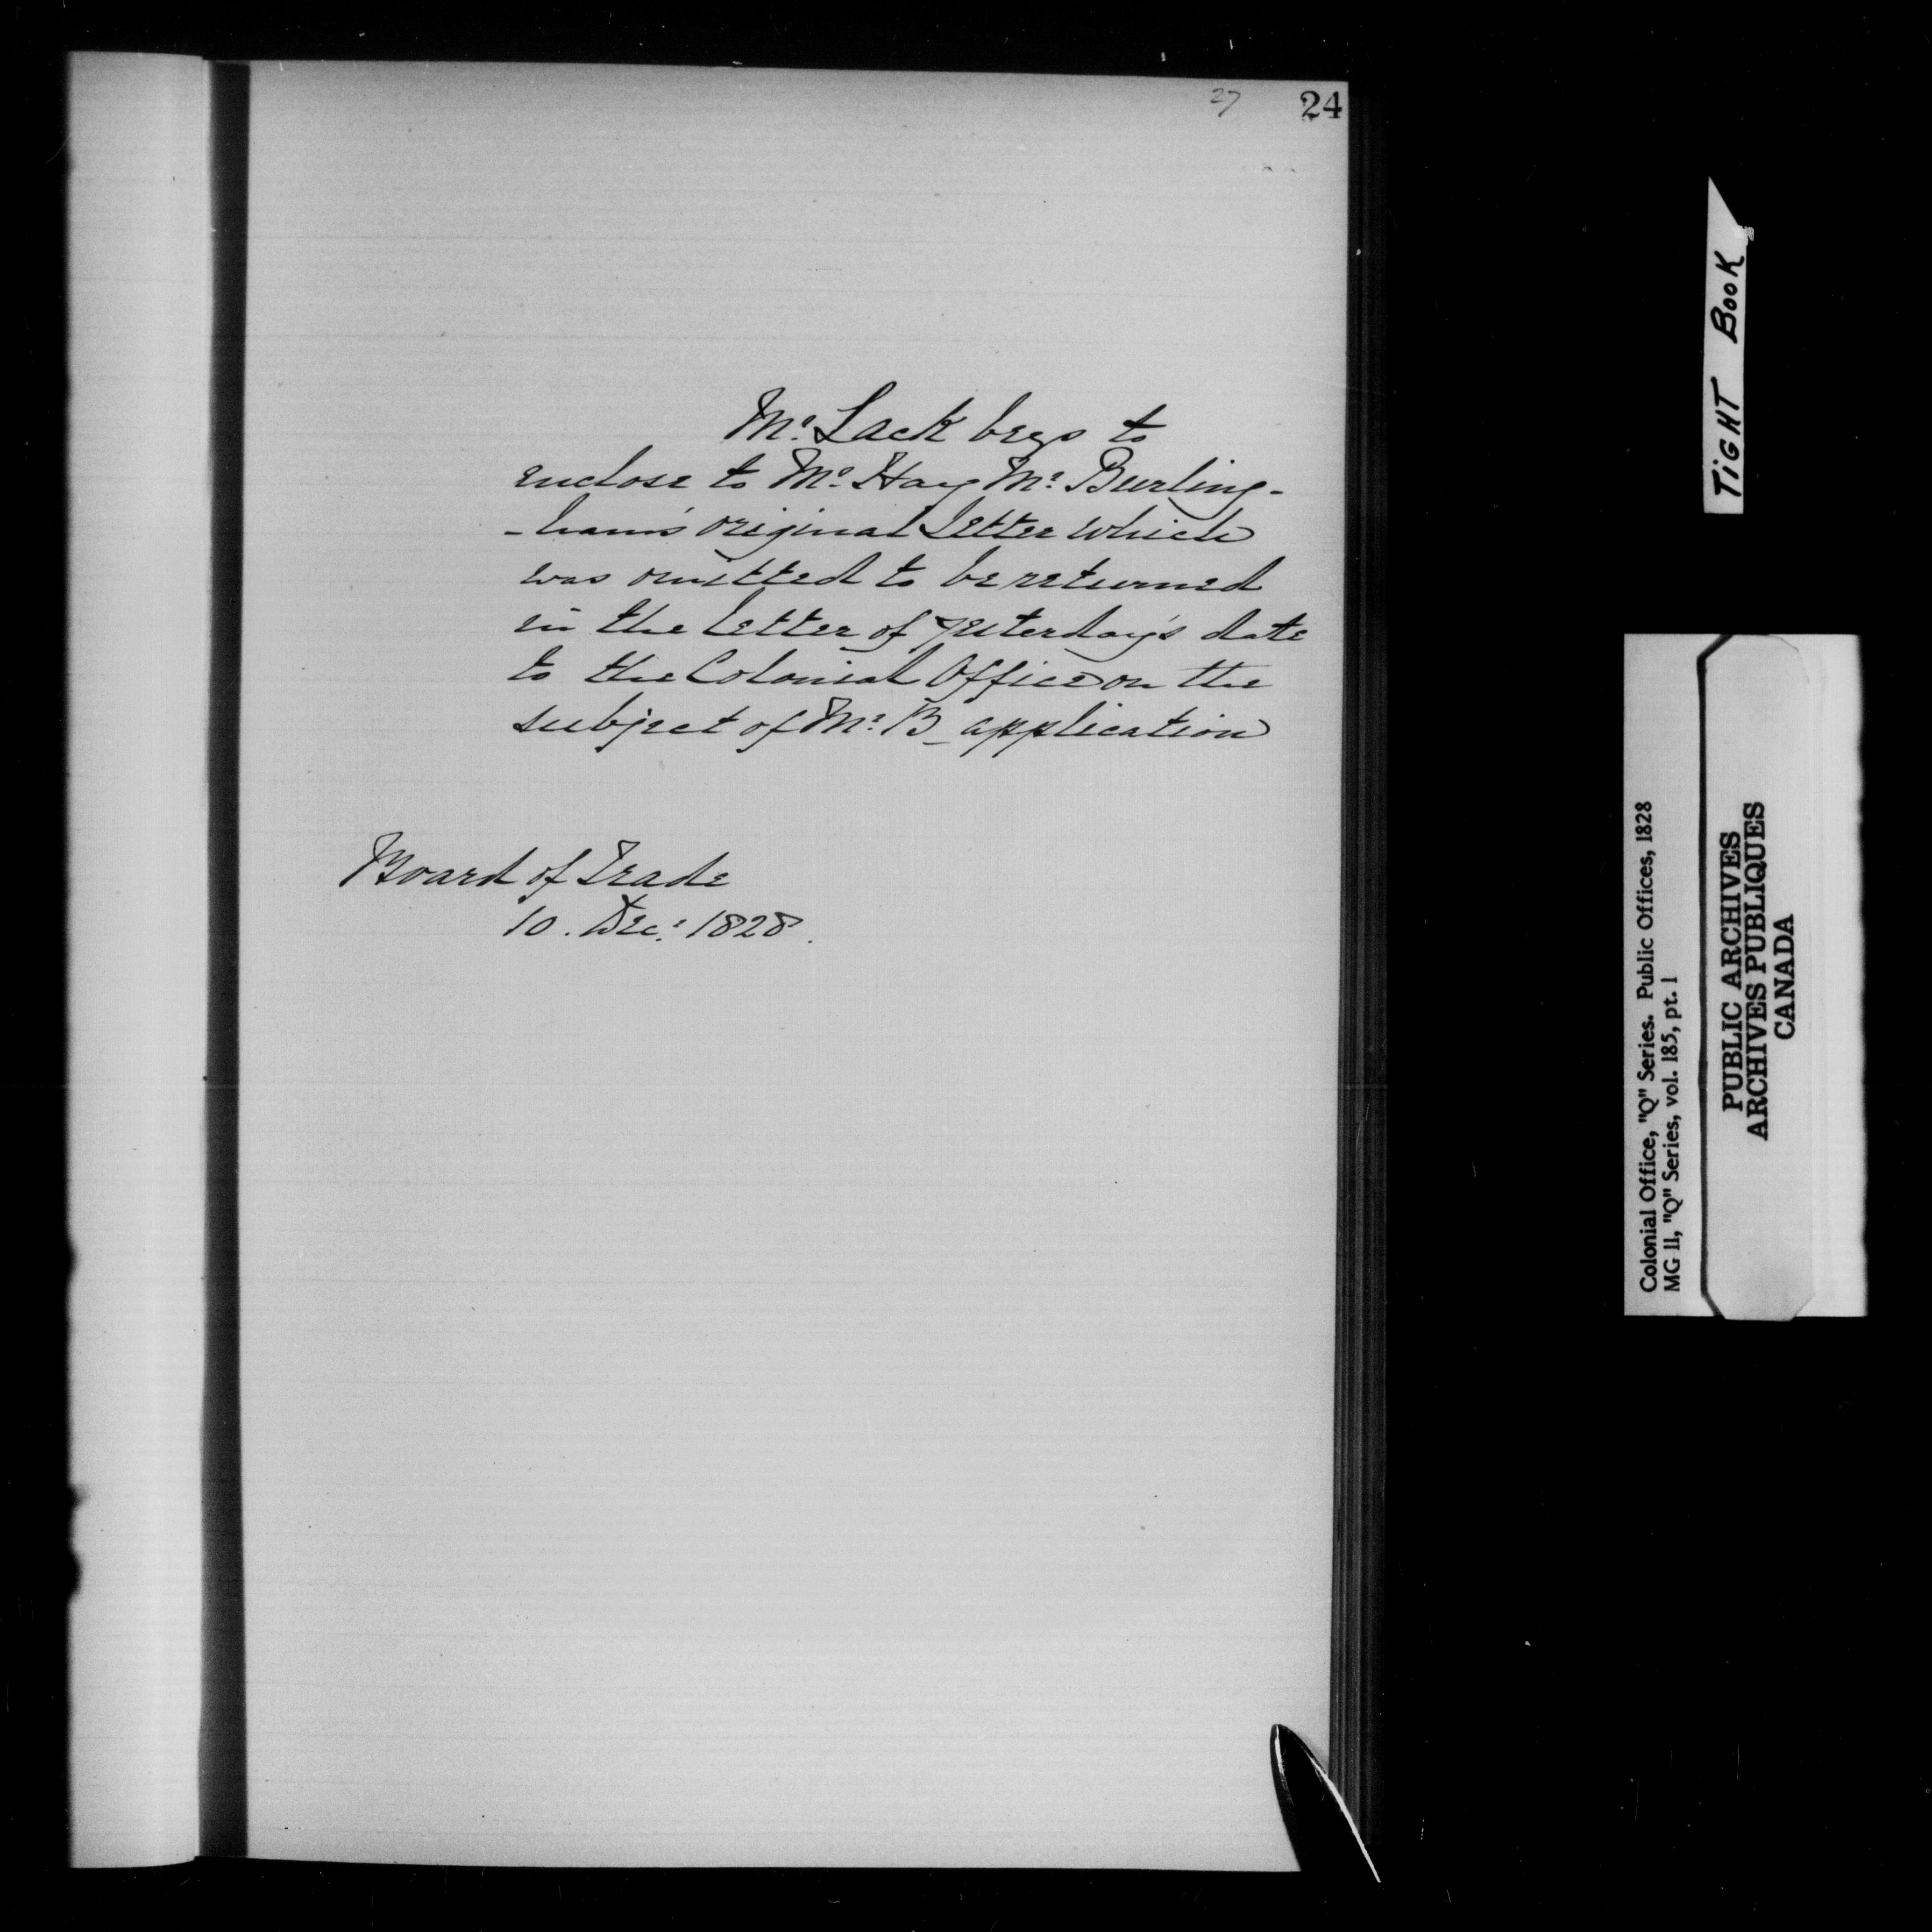 27 24
Mr. Lack begs to
enclose to Mr. Hay Mr. Burling-
-ham's original letter which
was omitted to be returned
in the letter of yesterday's date
to the Colonial Office on the
subject of Mr. B_ application
Board of Trade
10. Decr. 1828.
TIGHT BOOK
Colonial Office, "Q" Series. Public Offices, 1828
MG 11, "Q" Series, vol. 185, pt. 1
PUBLIC ARCHIVES
ARCHIVES PUBLIQUES
CANADA